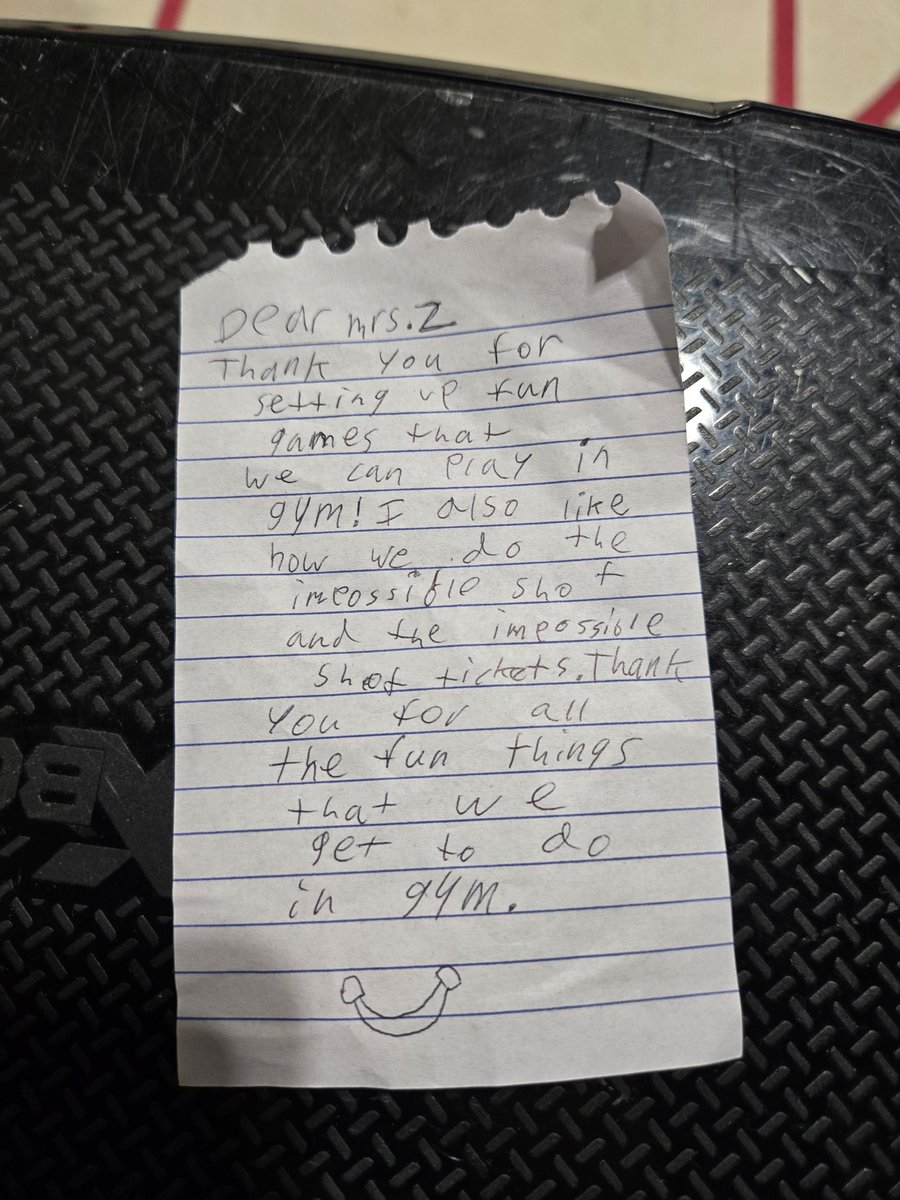 Dear mrs.Z
Thank you for
setting up fun
games that
we can play in
gym! I also like
how we do the
impossible shot
and the impossible
shot tickets. Thank
you for all
the fun things
that we
get to do
in gym.
BO